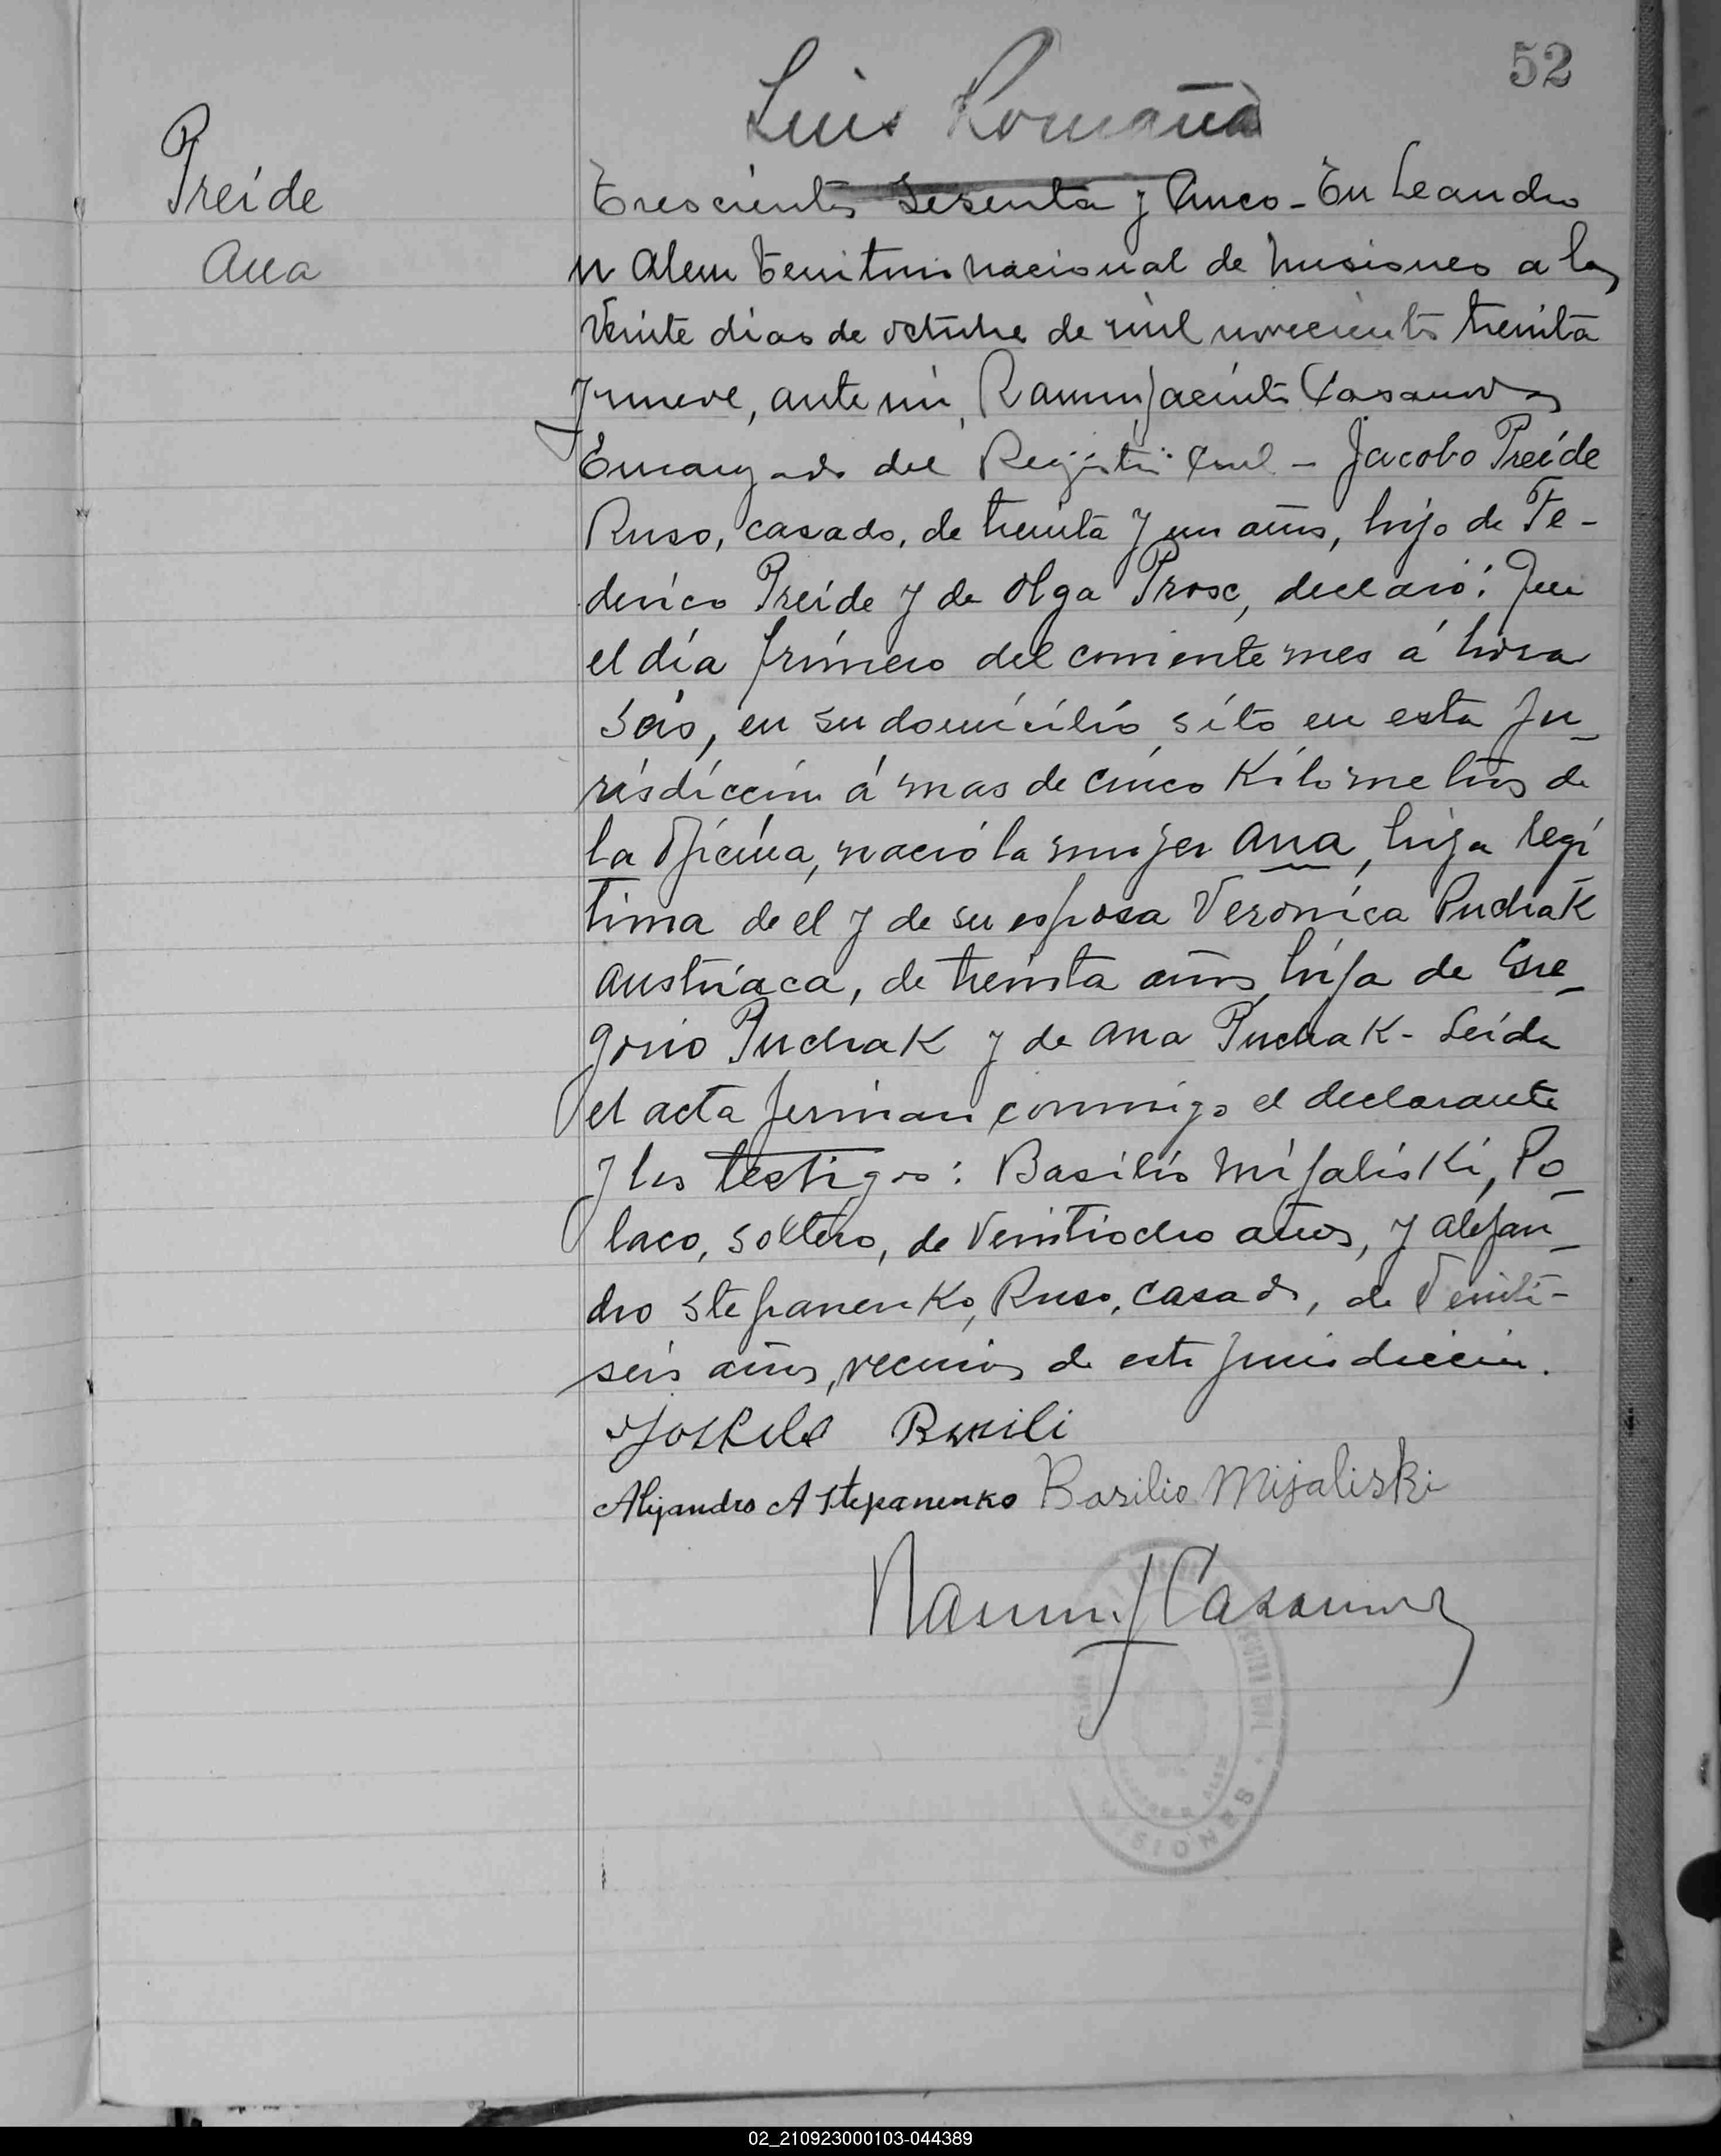 52
Luis Romaña
Preide
Ana
Trescientos Sesenta y Cinco - En Leandro
N Alem Territorio nacional de Misiones a los
Veinte dias de octubre de mil novecientos treinta
y nueve, ante mi, Ramon Jacinto Casanova
Encargado del Registro Civil - Jacobo Preide
Ruso, casado, de treinta y un años, hijo de Fe-
derico Preide y de Olga Prosc, declaró: Que
el día primero del corriente mes á hora
seis, en su domicilio, sito en esta Ju-
risdiccion á mas de cinco Kilometros de
la Oficina, nació la mujer Ana, hija legi
tima de el y de su esposa Veronica Puchak
austríaca, de treinta años, hija de Gre-
gorio Puchak y de Ana Puchak - Leida
el acta firman conmigo el declarante
y los testigos: Basilio Mijaliski, Po-
laco, soltero, de Veintiocho años, y Alejan-
dro Stepanenko, Ruso, casado, de Veinti-
seis años, vecinos de esta jurisdiccion.
Alejandro A Stepanenko Basilio Mijaliski
Ramon J Casanova
REGISTRO CIVIL
MISIONES
02_210923000103-044389